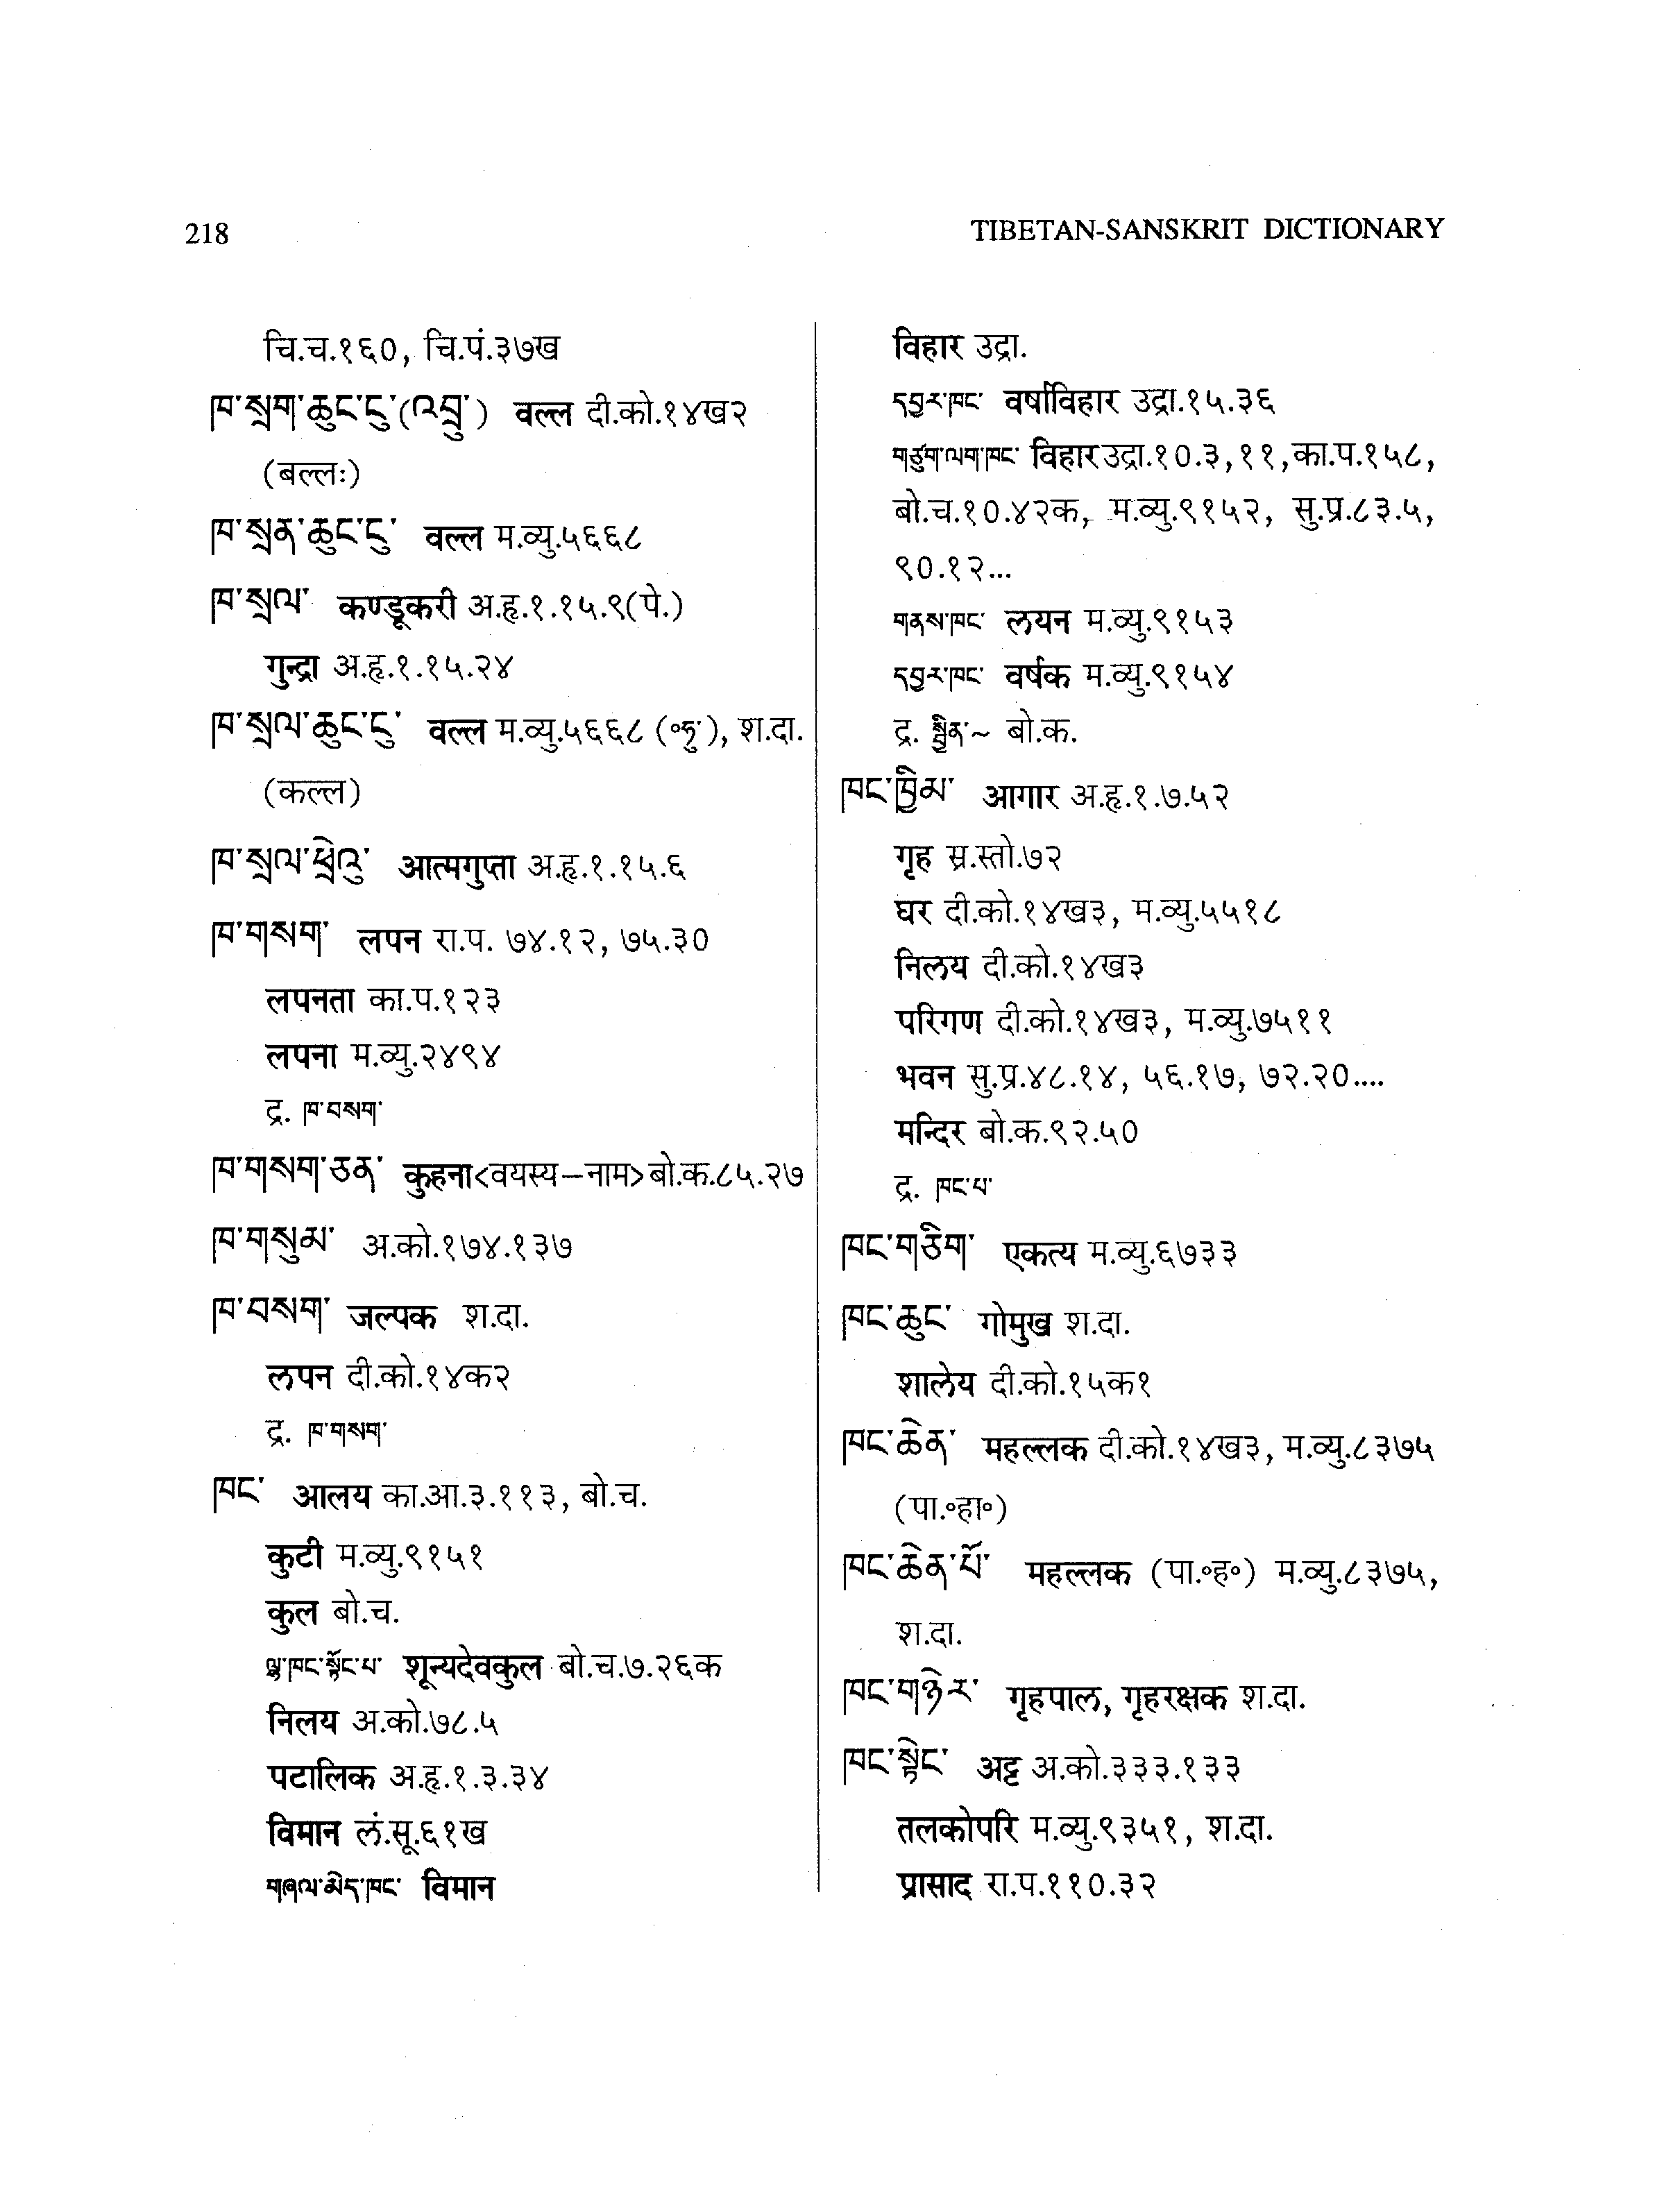 218
TIBETAN-SANSKRIT DICTIONARY
चि.च.१६०, चि.पं.३७ख
ཁ་སྲག་ཆུང་ངུ་(འབྲུ་) वल्ल दी.को.१४ख२
(बल्लः)
ཁ་སྲན་ཆུང་ངུ་ वल्ल म.व्यु.५६६८
ཁ་སྲལ་ कण्डूकरी अ.हृ.१.१५.९(पे.)
गुन्द्रा अ.हृ.१.१५.२४
ཁ་སྲལ་ཆུང་ངུ་ वल्ल म.व्यु.५६६८ (॰ཏུ་), श.दा.
(कल्ल)
ཁ་སྲལ་ཕྲེའུ་ आत्मगुप्ता अ.हृ.१.१५.६
ཁ་གསག་ लपन रा.प. ७४.१२, ७५.३०
लपनता का.प.१२३
लपना म.व्यु.२४९४
द्र. ཁ་བསག་
ཁ་གསག་ཅན་ कुहना<वयस्य-नाम>बो.क.८५.२७
ཁ་གསུམ་ अ.को.१७४.१३७
ཁ་བསག་ जल्पक श.दा.
लपन दी.को.१४क२
द्र. ཁ་གསག་
ཁང་ आलय का.आ.३.११३, बो.च.
कुटी म.व्यु.९१५१
कुल बो.च.
ལྷ་ཁང་སྟོང་པ་ शून्यदेवकुल बो.च.७.२६क
निलय अ.को.७८.५
पटालिक अ.हृ.१.३.३४
विमान लं.सू.६१ख
གཞལ་མེད་ཁང་ विमान
विहार उद्रा.
དབྱར་ཁང་ वर्षाविहार उद्रा.१५.३६
གཙུག་ལག་ཁང་ विहार उद्रा.१०.३,११,का.प.१५८,
बो.च.१०.४२क, म.व्यु.९१५२, सु.प्र.८३.५,
९०.१२...
གནས་ཁང་ लयन म.व्यु.९१५३
དབྱར་ཁང་ वर्षक म.व्यु.९१५४
द्र. སྦྱིན་~ बो.क.
ཁང་ཁྱིམ་ आगार अ.हृ.१.७.५२
गृह स्र.स्तो.७२
घर दी.को.१४ख३, म.व्यु.५५१८
निलय दी.को.१४ख३
परिगण दी.को.१४ख३, म.व्यु.७५११
भवन सु.प्र.४८.१४, ५६.१७, ७२.२०....
मन्दिर बो.क.९२.५०
द्र. ཁང་པ་
ཁང་གཅིག་ एकत्य म.व्यु.६७३३
ཁང་ཆུང་ गोमुख श.दा.
शालेय दी.को.१५क१
ཁང་ཆེན་ महल्लक दी.को.१४ख३, म.व्यु.८३७५
(पा.॰हा॰)
ཁང་ཆེན་པོ་ महल्लक (पा.॰ह॰) म.व्यु.८३७५,
श.दा.
ཁང་གཉེར་ गृहपाल, गृहरक्षक श.दा.
ཁང་སྟེང་ अट्ट अ.को.३३३.१३३
तलकोपरि म.व्यु.९३५१, श.दा.
प्रासाद रा.प.११०.३२